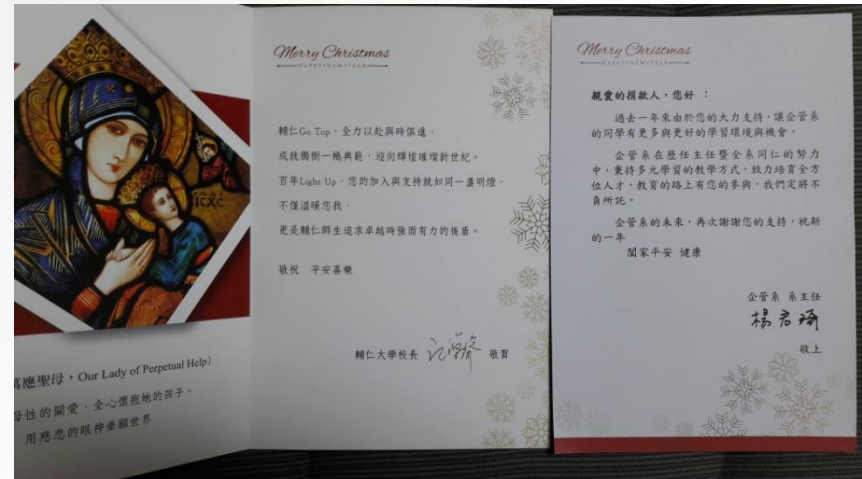 ICXC
萬應聖母，Our Lady of Perpetual Help)
母性的關愛，全心懷抱她的孩子。
用慈悲的眼神垂顧世界
Merry Christmas
HAPPY•NEW•YEAR
輔仁Go Top，全力以赴與時俱進，
成就獨樹一幟典範，迎向輝煌璀璨新世紀。
百年Light Up，您的加入與支持就如同一盞明燈，
不僅溫暖您我，
更是輔仁師生追求卓越時強而有力的後盾。
敬祝 平安喜樂
輔仁大學校長 敬賀
Merry Christmas
HAPPY•NEW•YEAR
親愛的捐款人，您好 ：
過去一年來由於您的大力支持，讓企管系
的同學有更多與更好的學習環境與機會。
企管系在歷任主任暨全系同仁的努力
中，秉持多元學習的教學方式，致力培育全方
位人才，教育的路上有您的參與，我們定將不
負所託。
企管系的未來，再次謝謝您的支持，祝新
的一年
闔家平安 健康
企管系 系主任
楊君琦
敬上